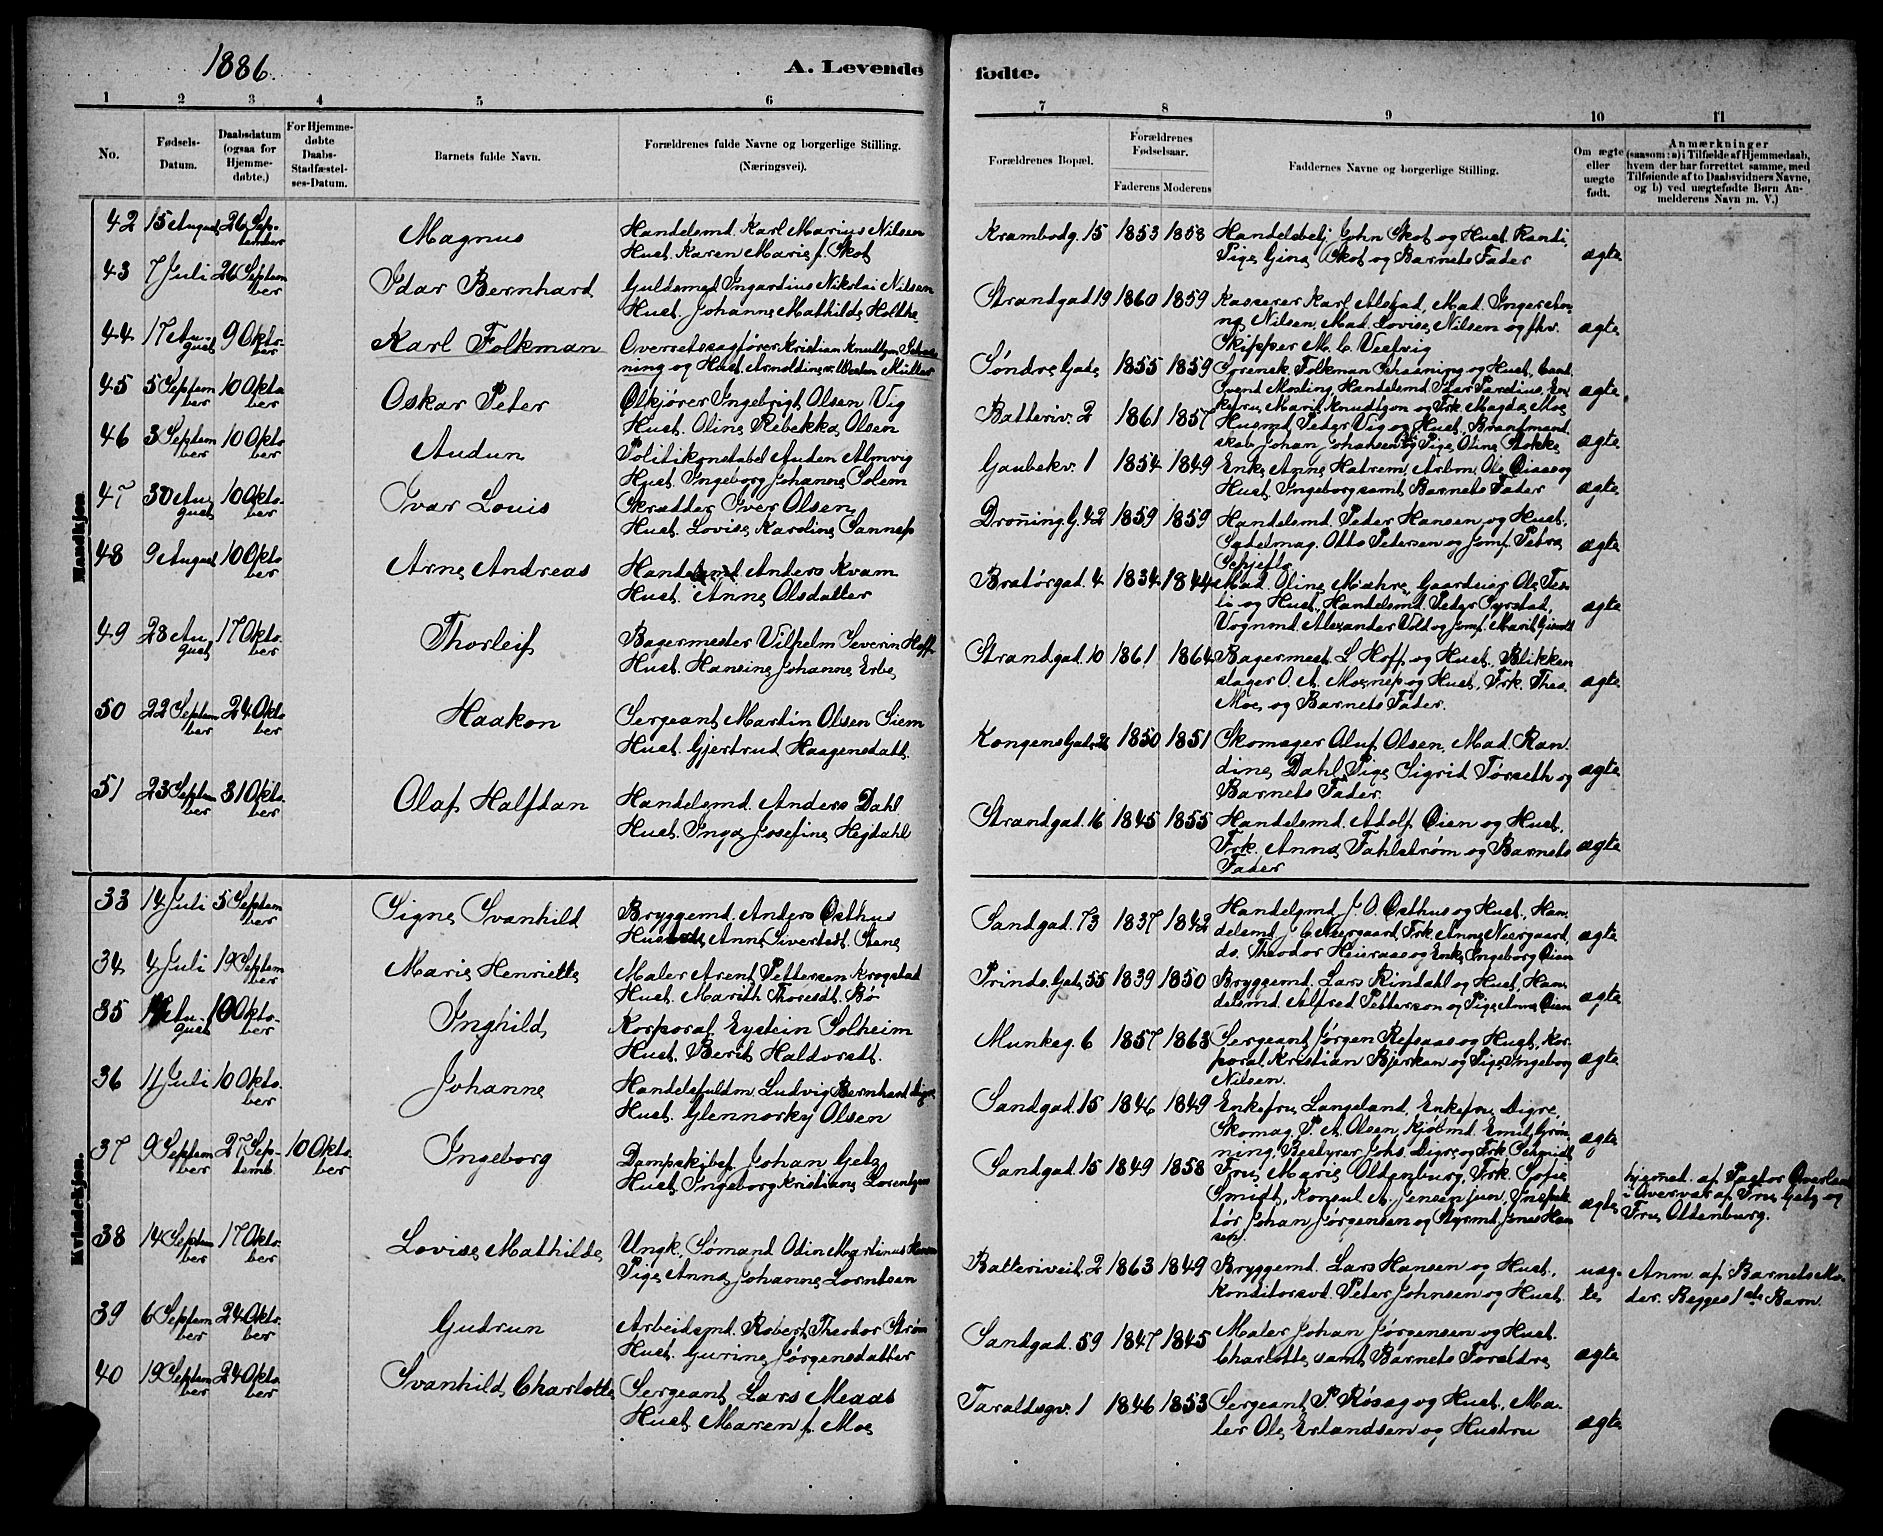 1886.
A. Levende fødte.
1 2 3 4 5 6 7 8 9 10 11
No.
Fødsels-
Datum.
Daabsdatum
(ogsaa for
Hjemme-
døbte.)
For Hjemme-
døbte
Daabs-
Stadfæstel-
ses-Datum.
Barnets fulde Navn.
Forældrenes fulde Navne og borgerlige Stilling.
(Næringsvei).
Forældrenes Bopæl.
Forældrenes
Fødselsaar.
Faderens Moderens
Faddernes Navne og borgerlige Stilling.
Om ægte
eller
uægte
født.
Anmærkninger
(saasom: a) i Tilfælde af Hjemmedaab,
hvem der har forrettet samme, med
Tilføiende af to Daabsvidners Navne,
og b) ved uægtefødte Børn An-
melderens Navn m. V.)
Mandkjøn.
42 15 August 26 Sep-
tember
Magnus
Handelsmd. Karl Marius Nilsen
Hust. Karen Marie f. Skot
Krambodg. 15 1853 1858
Handelsbetj. John Skot og Hust. Randi,
Pige Gina Skot og Barnets Fader
ægte
43 7 Juli 26 Septem
ber
Idar Bernhard
Guldsmed Ingardius Nikolai Nilsen
Hust. Johanne Mathilde Holthe
Strandgad 19 1860 1859
Kasserer Karl Alstad, Mad. Inger
Nilsen, Mad. Lovise Nilsen og fhv.
Skipper M. C.
ægte
44 17 Au-
gust 9 Okto-
ber
Karl Folkman
Overretssagfører Kristian Knudtzon Schav-
ning og Hust. Arnoldine v. Westen Müller
Søndre Gade 1855 1859
Folkman og Hust. Cand.
Svend Mosling Handelsmd. Idar Parelius, En-
kefru Marie Knudtzon og Frk. Magda Moe
ægte
45 5 Septem
ber 10 Okto
ber
Oskar Peter
Ølkjører Ingebrigt Olsen Vig
Hust. Oline Rebekka Olsen
Batteriv. 2 1861 1857
Husmd Peder Vig og Hust. Brandmand-
skab Johan Johansen og Pige Oline Stokke
ægte
46 3 Septem
ber 10 Okto
ber
Audun
Politikonstabel Auden Almvig
Hust. Ingeborg Johanne Solem
Gaubekv. 1 1854 1849
Enke Anne Hatrem, Arbm. Ole Øiaas og
Hust. Ingeborg samt Barnets Fader
ægte
47 30 Au
gust 10 Okto-
ber
Ivar Louis
Skrædder Iver Olsen
Hust. Lovise Karoline Sannep
Droning.G. 42 1859 1859
Handelsmd. Peder Hansen og Hust.
Sadelmag. Otto Petersen og Jomf. Petra
Schjefte
ægte
48 9 August 10 Okto
ber
Arne Andreas
Handelsmd Anders Kvam
Hust. Anne Olsdatter
Bratørgad. 4 1834 1844
Mad. Oline Mæhre, Gaardeier Ole
og Hust, Handelsmd. Peder Syrstad,
Vognmd. Alexander Vold og Jomf. Marit
ægte
49 28 Au
gust 17 Okto.
ber
Thorleif
Bagermester Vilhelm Severin Hoff
Hust. Hansine Johanne Erbe
Strandgad. 10 1861 1864
Bagermest. L. Hoff og Hust. Blikken
slager O. A. Moenep og Hust, Frk. Thea
Moe, og Barnets Fader.
ægte
50 22 Septem
ber 24 Okto
ber
Haakon
Sergeant Martin Olsen Siem
Hust. Gjertrud Haagensdatt.
Kongens Gade 1850 1851
Skomager Oluf Olsen, Mad. Ran-
dine Dahl, Pige Sigrid Tørseth og
Barnets Fader.
ægte
51 23 Septem
ber 31 Okto.
ber
Olaf Halfdan
Handelsmd. Anders Dahl
Hust. Inga Josefine Hegdahl
Strandgad. 16 1845 1855
Handelsmd. Adolf Øien og Hust.
Frk. Anna Fahlstrøm og Barnets
Fader
ægte
Kvindekjøn.
33 14 Juli 5 Septem
ber
Signe Svanhild
Bryggemd. Anders Østhus
Hust. Anne Sivertsdt. Stene
Sandgad. 73 1837 1842
Handelsmd J. O. Østhus og Hust., Han-
delsmd J. C. Neergaard, Frk. Anne Neergaard,
do. Theodor Heiraas og Enke Ingeborg Øien
ægte
34 4 Juli 19 Septem
ber
Marie Henriette
Maler Arent Pettersen Krogstad
Hust. Marith Thoresdt. Bø
Prinds. Gade 55 1839 1850
Bryggemd. Lars Rindahl og Hust, Han-
delsmd. Alfred Petterson og Pige Anne Øien
ægte
35 Au-
gust 10 Okto-
ber
Inghild
Korporal Eystein Solheim
Hust. Berit Haldorsdt.
Munkeg. 6 1857 1863
Sergeant Jørgen Refsaas og Hust, Kor-
poral Kristian Bjerkan og Pige Ingeborg
Nilsen.
ægte
36 11 Juli 10 Okto.
ber
Johanne
Handelsfuldm. Ludvig Bernhard Digre
Hust. Glennorky Olsen
Sandgad. 15 1846 1849
Enkefru Langeland, Enkefru Digre,
Skomag. P. A. Olsen, Kjøbmd. Emil Grøn-
ning, Bestyrer Johs. Digre og Frk.
ægte
37 9 Septem
ber 27 Sep-
temb. 10 Okto.
ber
Ingeborg
Dampskibsf. Johan Getz
Hust. Ingeborg Kristiane Lorentzen
Sandgad. 15 1849 1858
Fru Marie Oldenburg, Frk. Sofie
Smidt, Konsul A. Jensen jun, Inspek-
tør Johan Jørgensen og Styrmd. Jens Han
sen.
ægte
hjemmed. af Pastor Øverland
i Overvær af Fru Getz og
Fru Oldenburg.
38 14 Septem
ber 17 Okto.
ber
Lovise Mathilde
Ungk. Sømand Odin Martinus Hansen
Pige Anna Johanne Lorntsen
Batteriveit. 2 1863 1849
Bryggemd. Lars Hansen og Hust.,
Konditorsvd. Peter Johnsen og Hust.
uæg-
te
Anm. af Barnets Mo-
der. Begges 1ste Barn.
39 6 Septem
ber 24 Okto.
ber
Gudrun
Arbeidsmd. Robert Theodor Strøm
Hust. Gurine Jørgensdatter
Sandgad. 59 1847 1845
Maler Johan Jørgensen og Hust.
Charlotte samt Barnets Forældre
ægte
40 19 Septem
ber 24 Okto.
ber
Svanhild Charlotte
Sergeant Lars Meaas
Hust. Maren f. Moe
Taraldsgv. 1 1846 1853
Sergeant P. Røsag og Hust., Ma-
ler Ole Erlandsen og Hustru
ægte